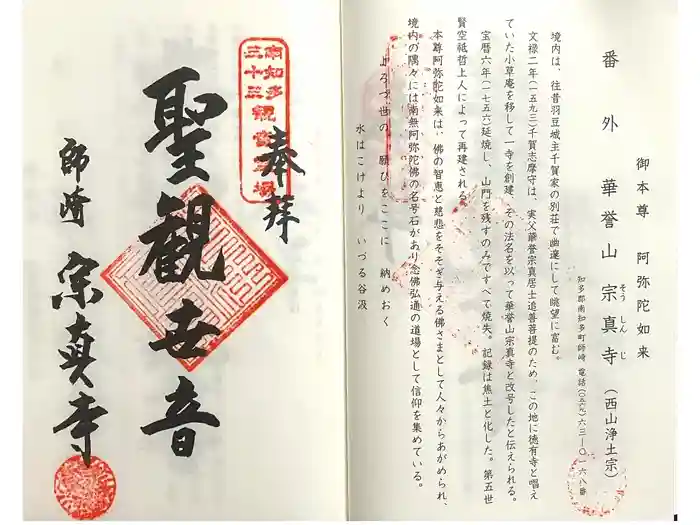 番外 華誉山宗真寺（西山浄土宗）
そうしんじ
御本尊 阿弥陀如来
知多郡南知多町師崎 電話（〇五六九）六三―〇一六八番
境内は、往昔羽豆城主千賀家の別荘で幽邃にして眺望に富む。
文禄二年（一五九三）千賀志摩守は、実父華誉宗真居士追善菩提のため、この地に徳有寺と唱え
ていた小草庵を移して一寺を創建、その法名を以って華誉山宗真寺と改号したと伝えられる。
宝暦六年（一七五六）延焼し、山門を残すのみですべて焼失。記録は焦土と化した。第五世
賢空祗哲上人によって再建される。
本尊阿弥陀如来は、佛の智恵と慈悲をそそぎ与える佛さまとして人々からあがめられ、
境内の隅々には南無阿弥陀佛の名号石があり念佛弘通の道場として信仰を集めている。
よろづ世の 願ひをここに 納めおく
水はこけより いづる谷汲
南知多
三十三観音霊場
奉拝
聖観世音
師崎 宗真寺